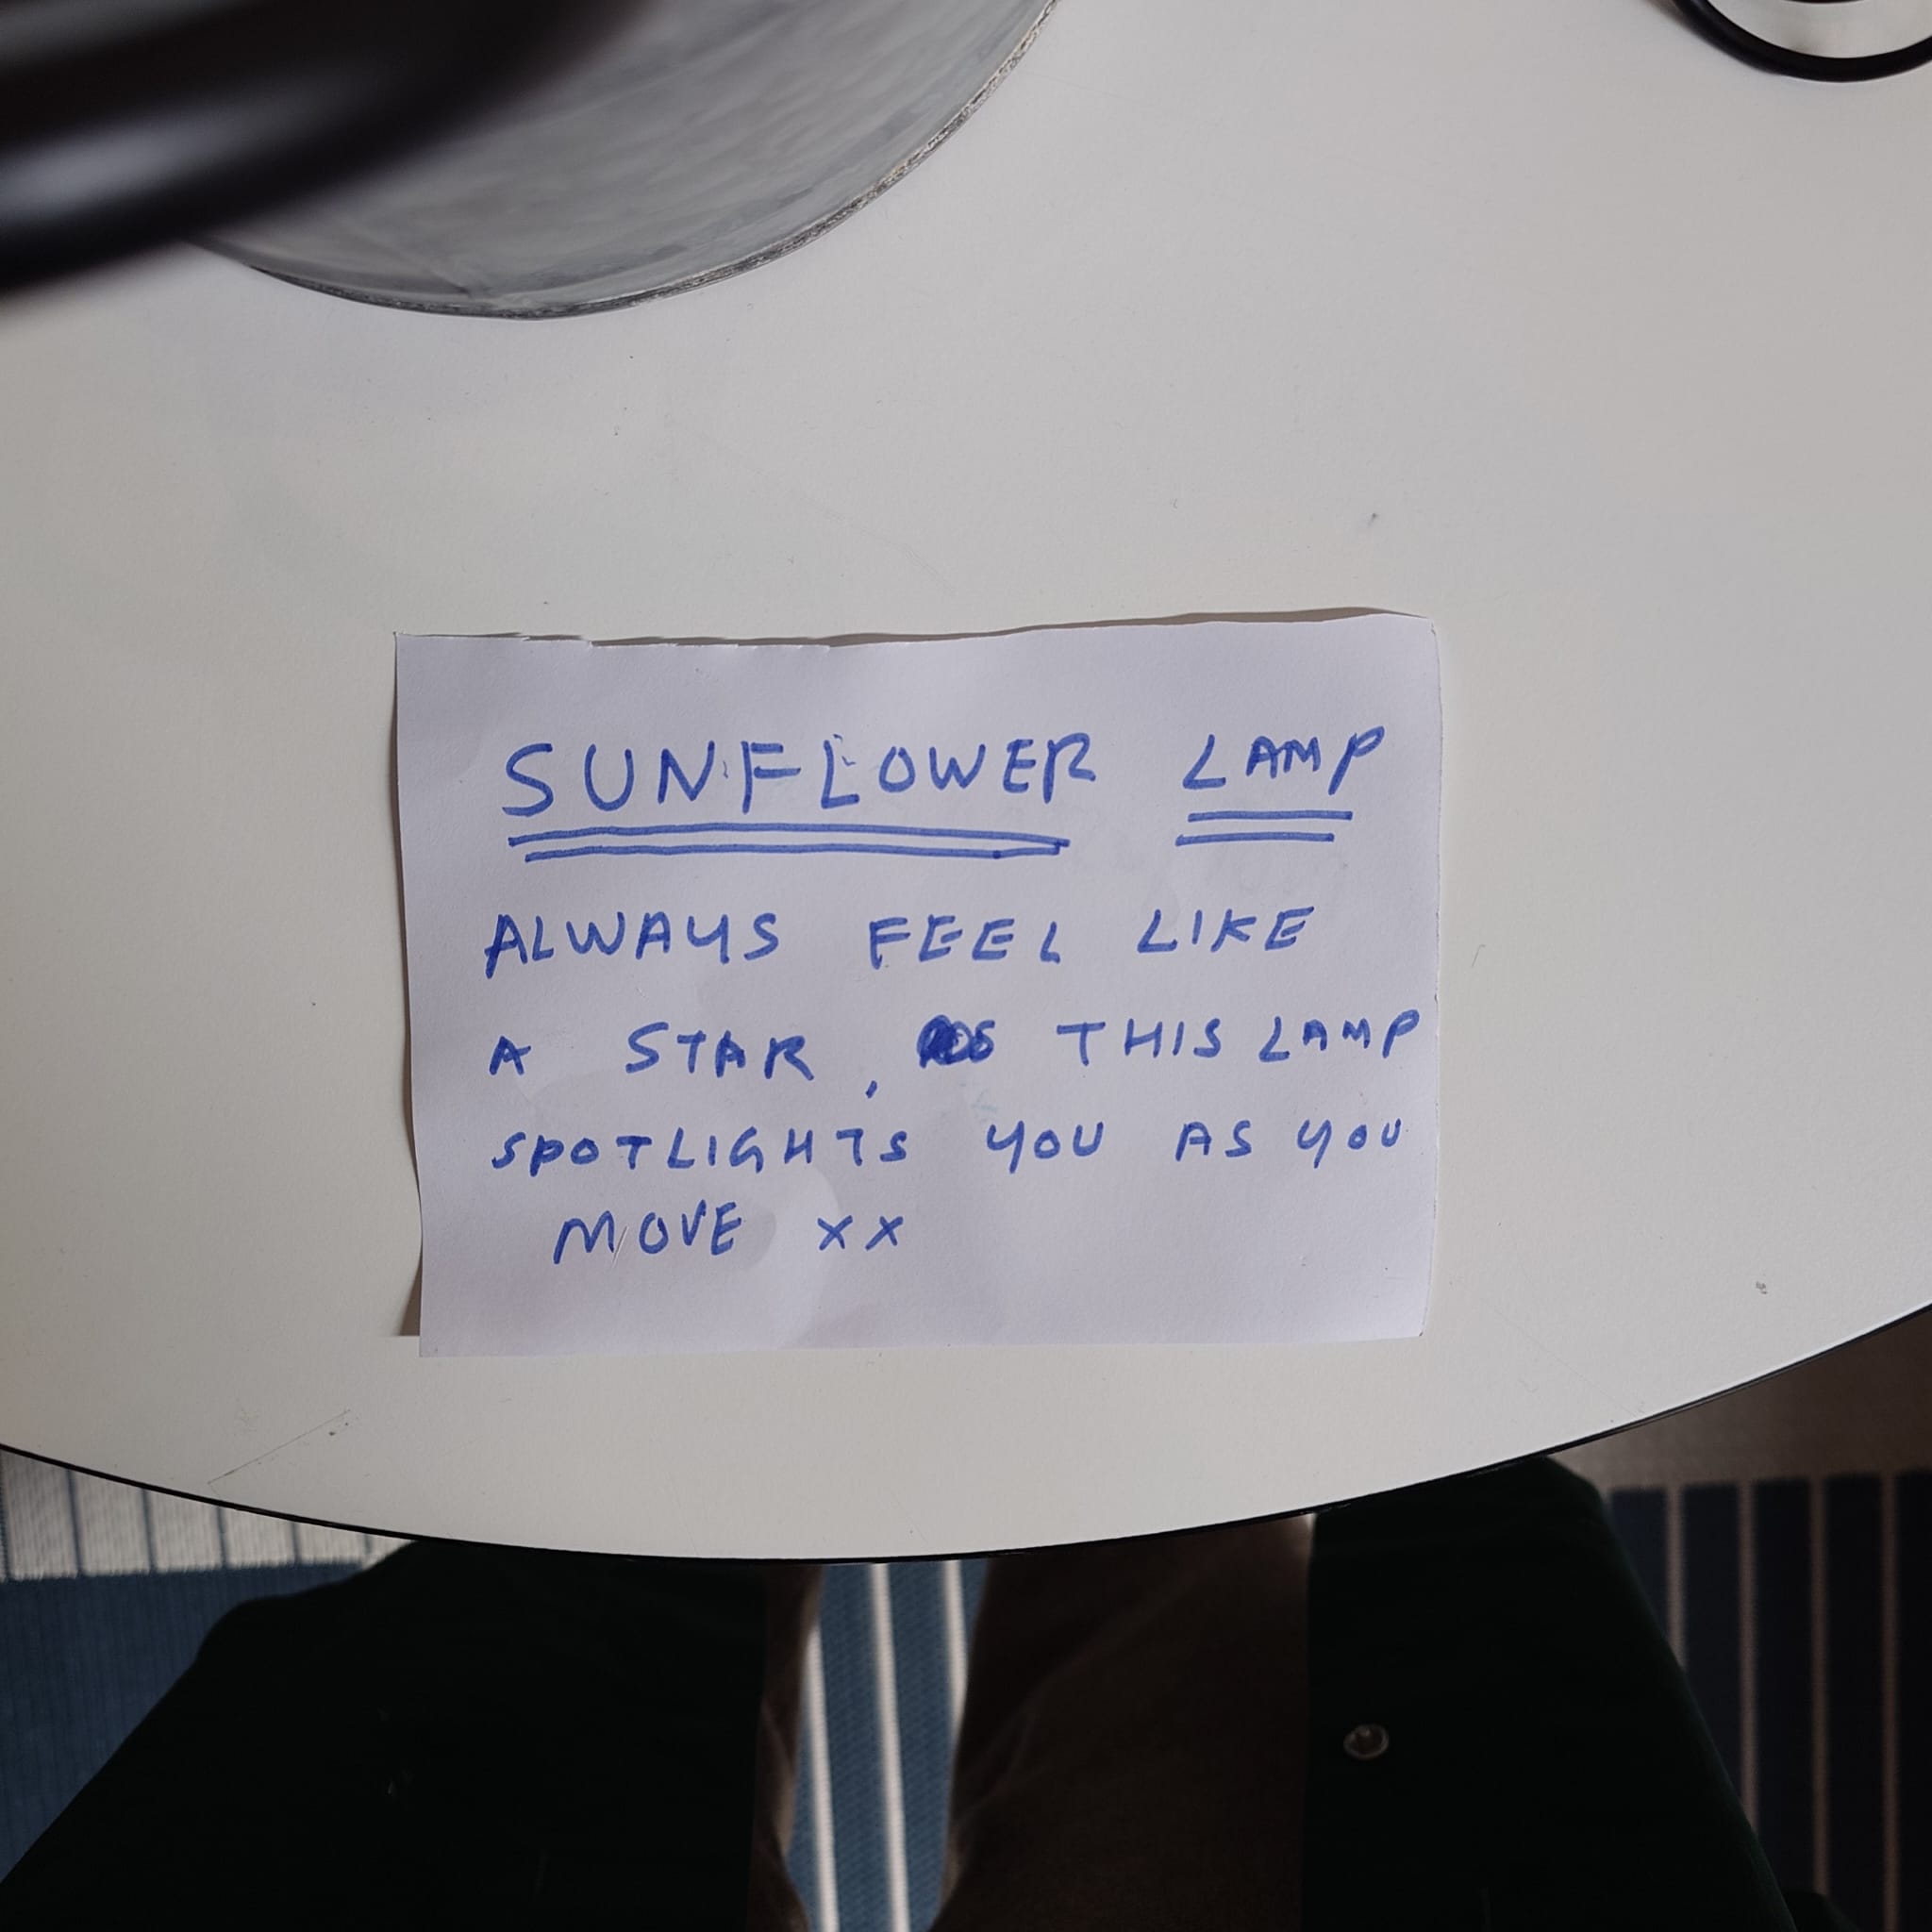 SUNFLOWER LAMP
ALWAYS FEEL LIKE
A STAR, AS THIS LAMP
SPOTLIGHTS YOU AS YOU
MOVE XX